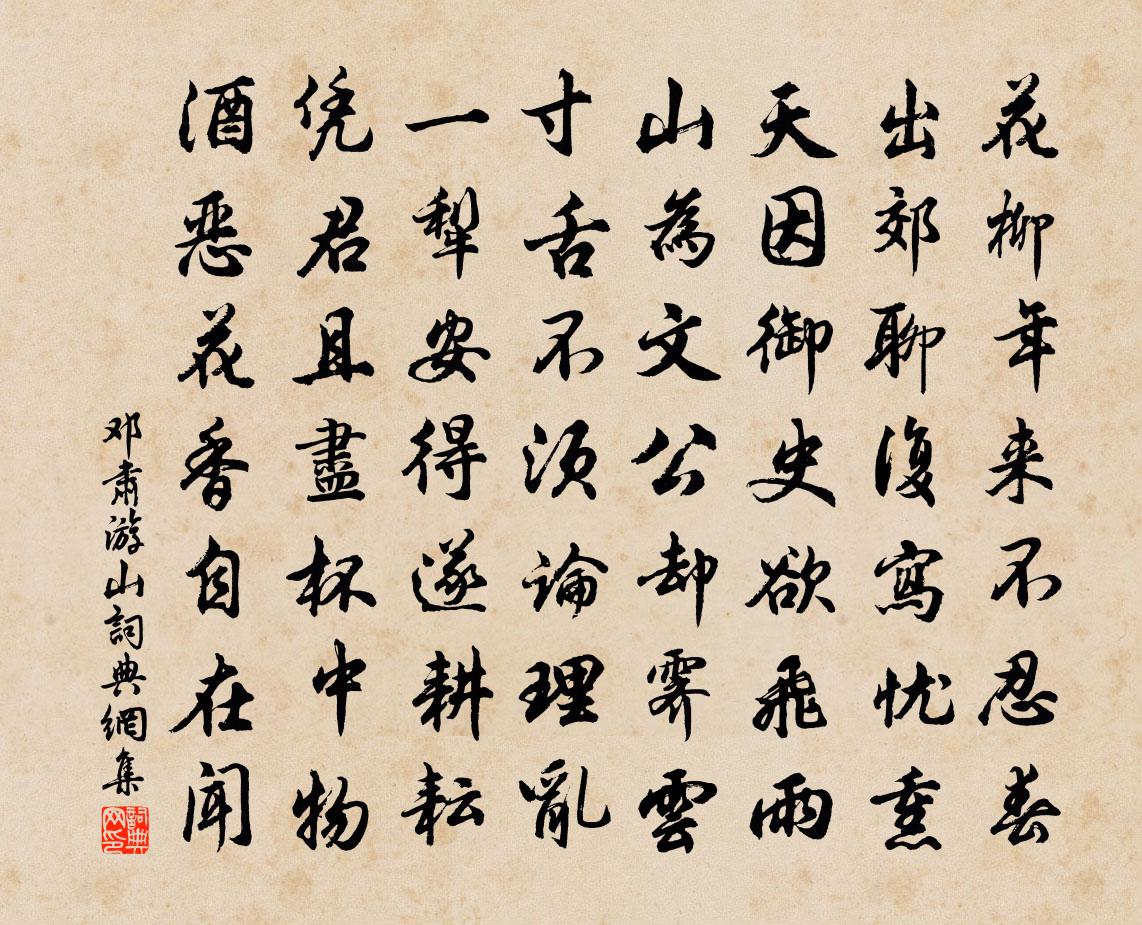 花柳年来不忍春
出郊聊復寫忧熏
天因御史欲飛雨
山為文公却霽雲
寸舌不須論理亂
一犁安得遂耕耘
凭君且盡杯中物
酒恶花香自在聞
邓肃游山詞典網集
詞典网印